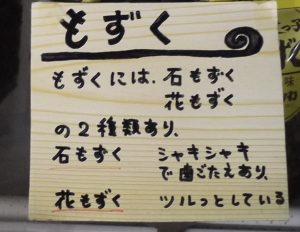 もずく
もずくには、石もずく
花もずく
の2種類あり、
石もずく シャキシャキ
で歯ごたえあり、
花もずく ツルっとしている